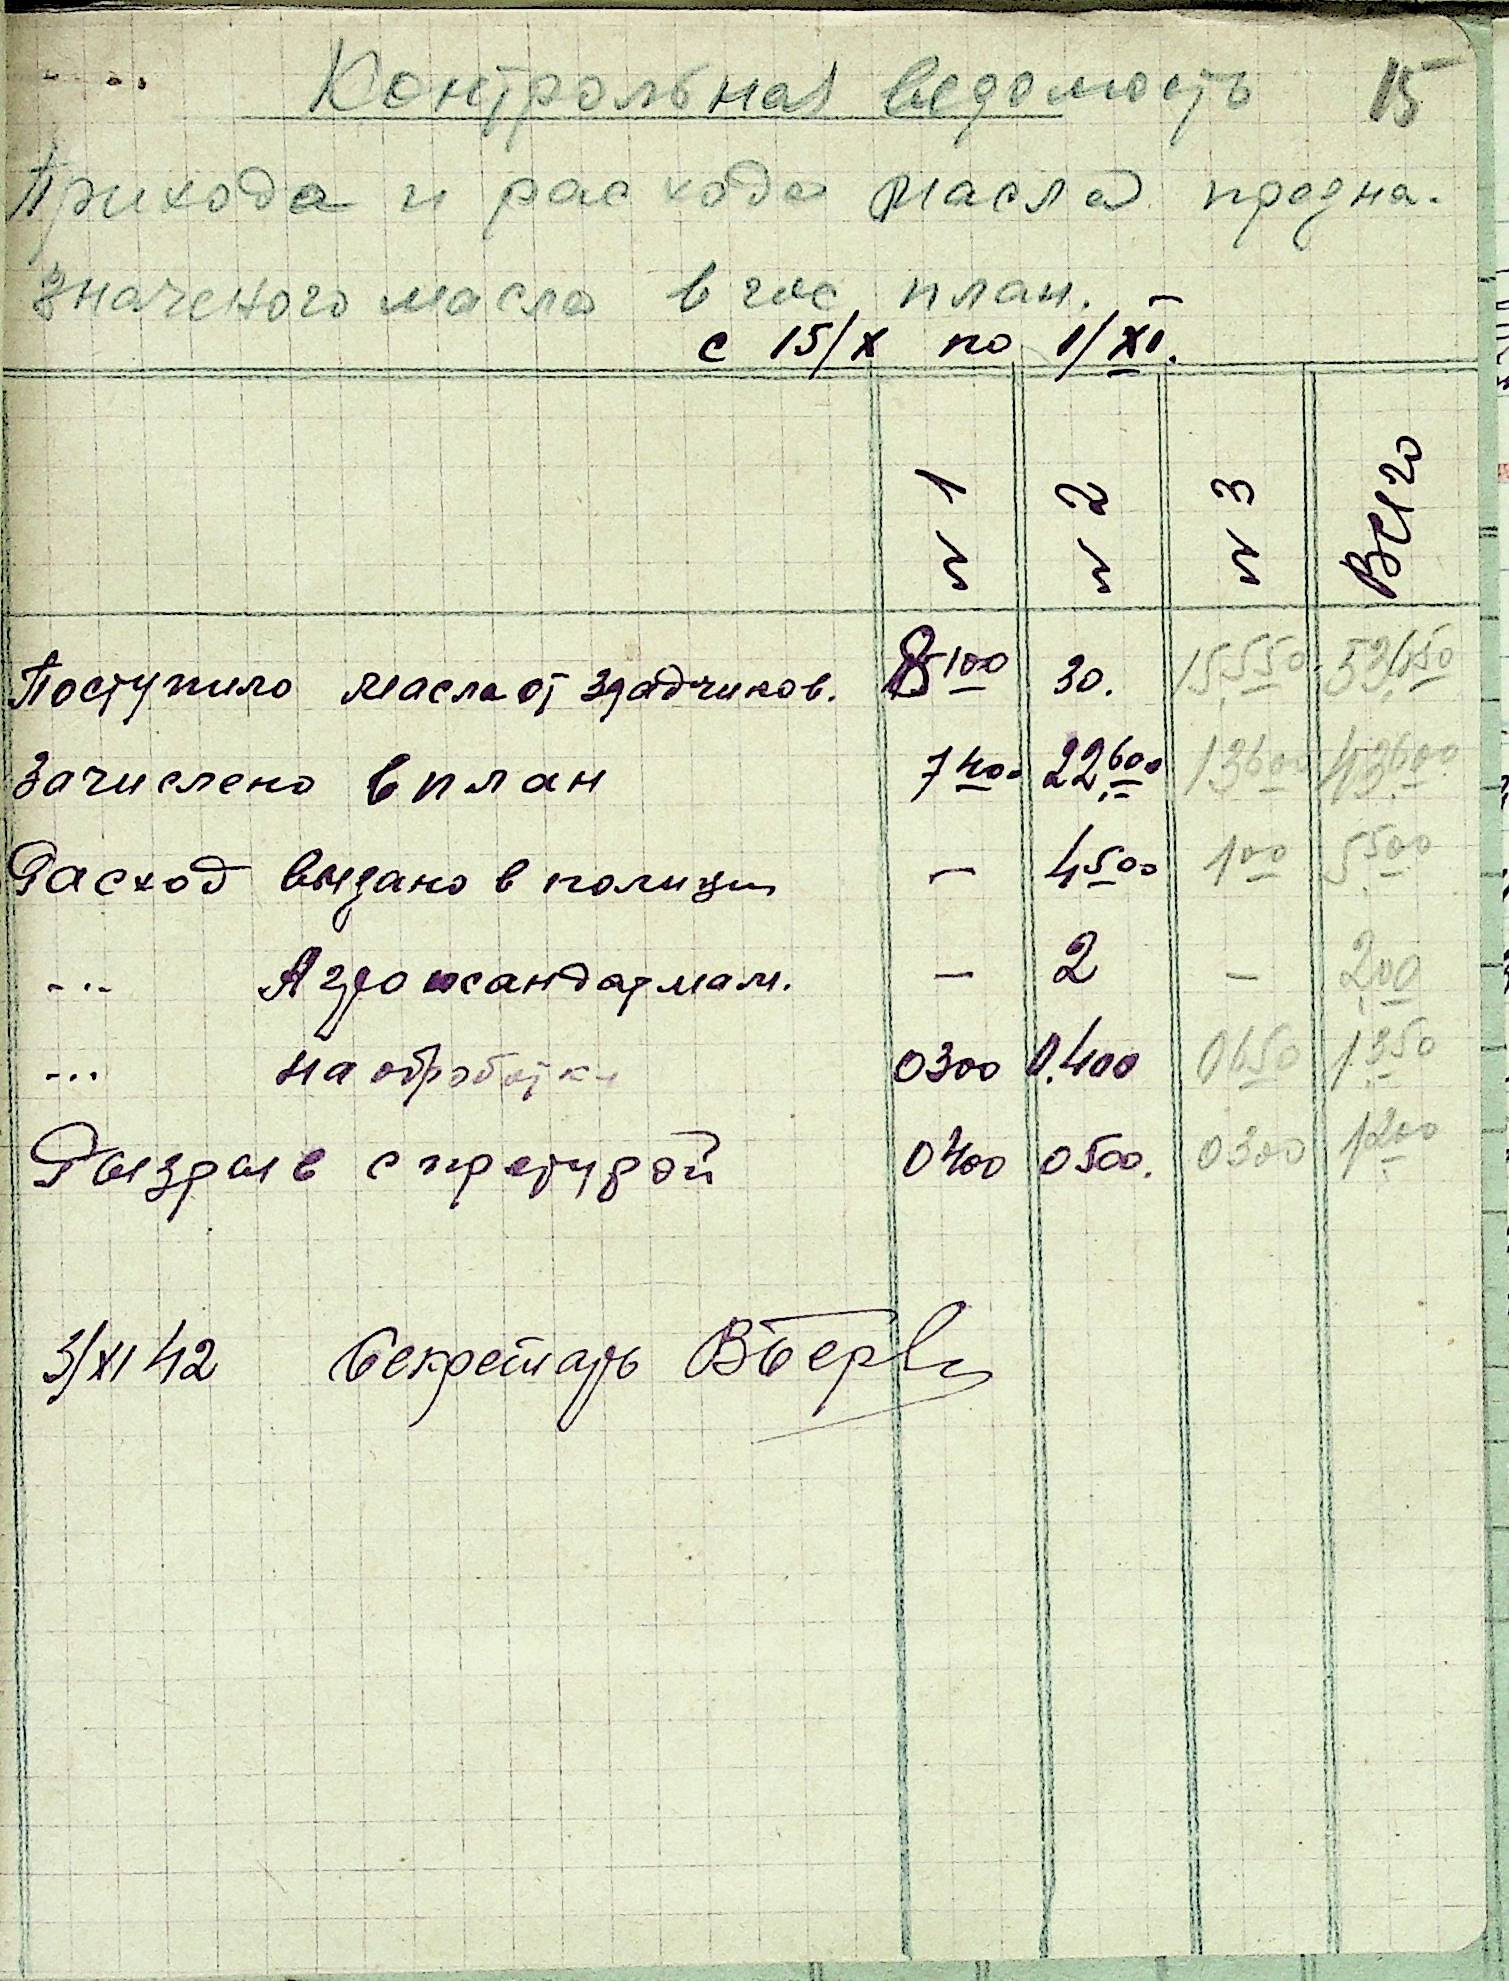 Контрольная ведомость 15
Прихода и расхода масла предна-
значеного масла в гос план.
с 15/X по 1/XI.
N 1 N 2 N 3 Всего
Поступило масла от здадчиков. 8100 30. 15,550 53,650
Зачислено в план 7400 22,600 13600 43,600
Расход выдано в полицию - 4500 100 5,500
-..- Агрожандармам. - 2 - 2,00
-..- на обработки 0300 0,400 0650 1,350
0400 0500. 0300 1200
3/XI 42 Секретарь